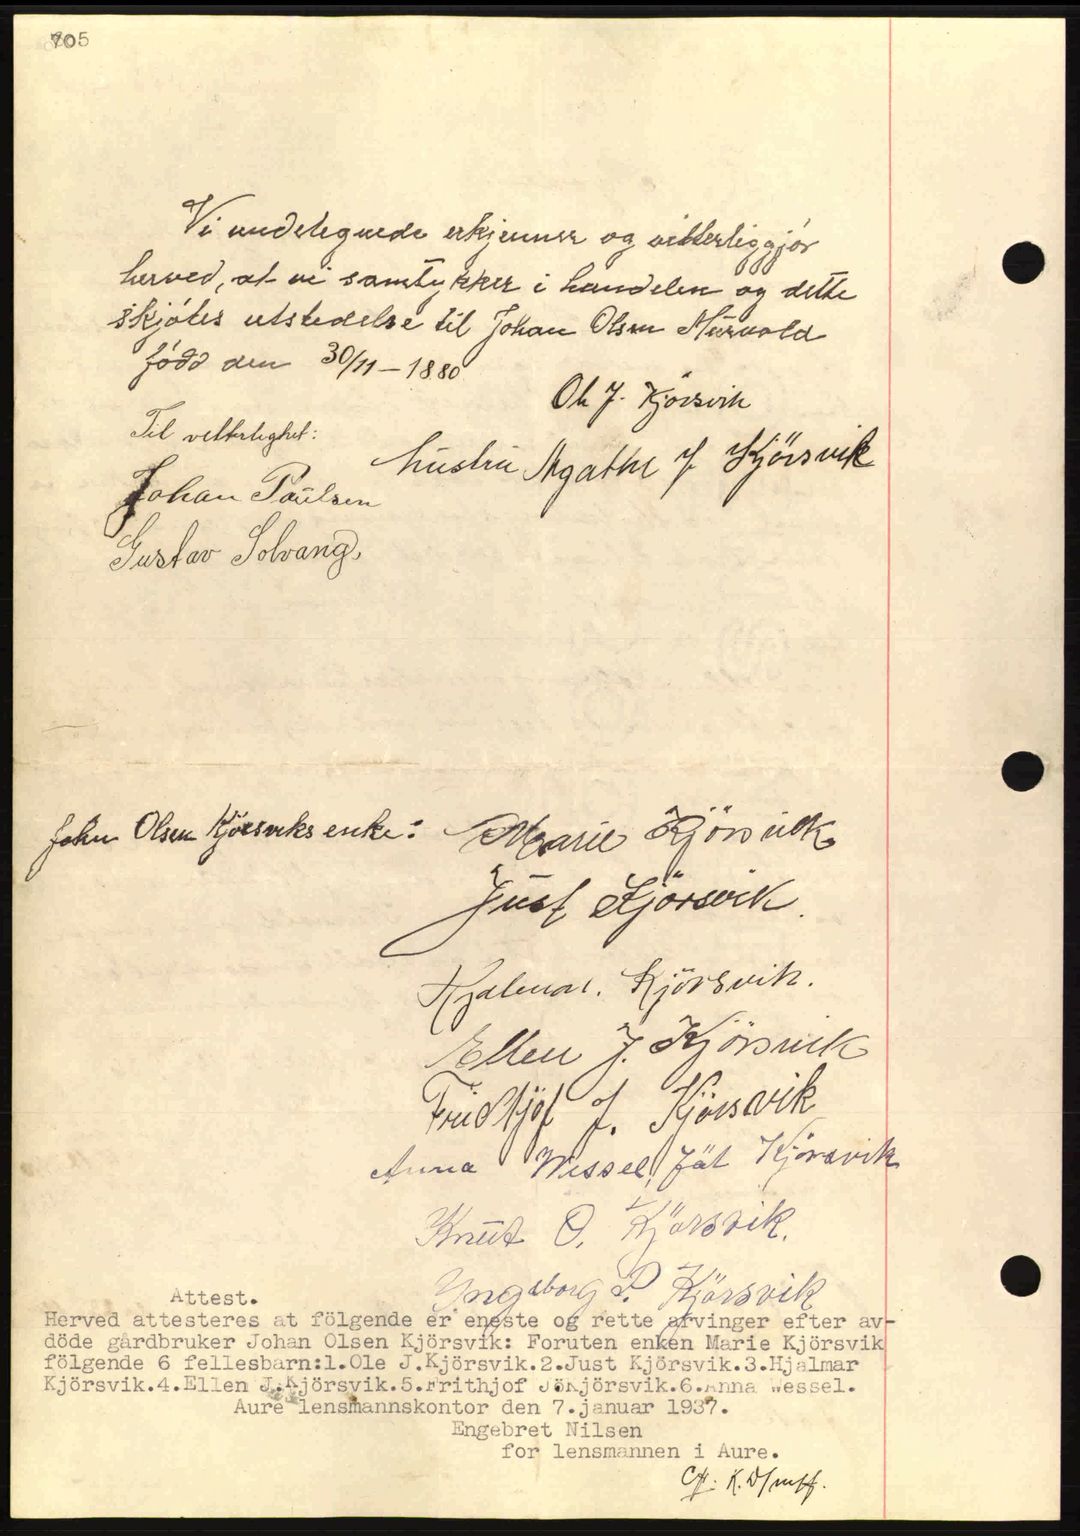 705
Vi undetegnede erkjenner og vitterliggjør
herved, at vi samtykker i handelen og dette
skjøtes utstedelse til Johan Olsen Mürvold
født den 30/11 - 1880
Ole J. Kjörsvik
Til vitterlighet:
hustru Agathe J Kjörsvik
Johan Paulsen
Gustav Solvang,
John Olsen Kjörsviks enke: Marie Kjörsvik
Just Kjörsvik.
Hjalmar. Kjörsvik.
Ellen J. Kjörsvik
Fridtjöf J. Kjörsvik
Anna Wessel, föt Kjörsvik
Knut O. Kjörsvik.
Yngeborg P. Kjörsvik
Attest.
Herved attesteres at fölgende er eneste og rette arvinger efter av-
döde gårdbruker Johan Olsen Kjörsvik: Foruten enken Marie Kjörsvik
fölgende 6 fellesbarn:1.Ole J.Kjörsvik.2.Just Kjörsvik.3.Hjalmar
Kjörsvik.4.Ellen J.Kjörsvik.5.Frithjof J.Kjörsvik.6.Anna Wessel.
Aure lensmannskontor den 7.januar 1937.
Engebret Nilsen
for lensmannen i Aure.